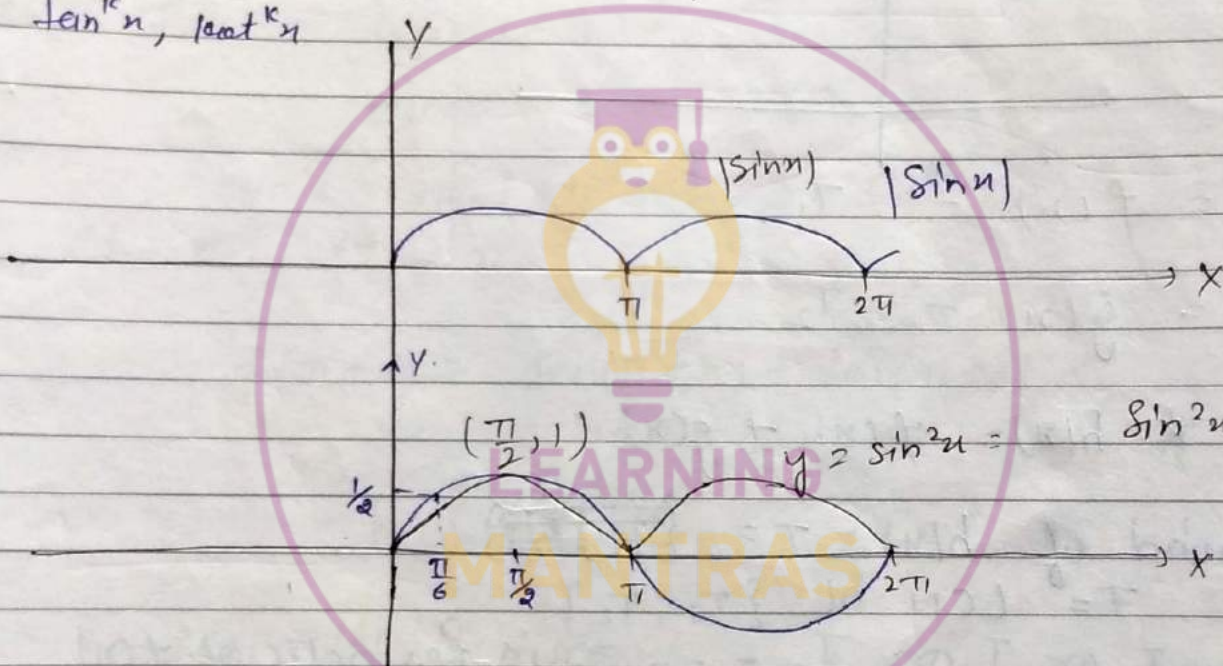 tan^k x, |cot^k x
Y
|Sinx)
|Sinx|
π
2π
X
Y.
(π/2, 1)
y = sin²x = Sin²x
1/2
π/6
π/2
π
2π
X
LEARNING
MANTRAS